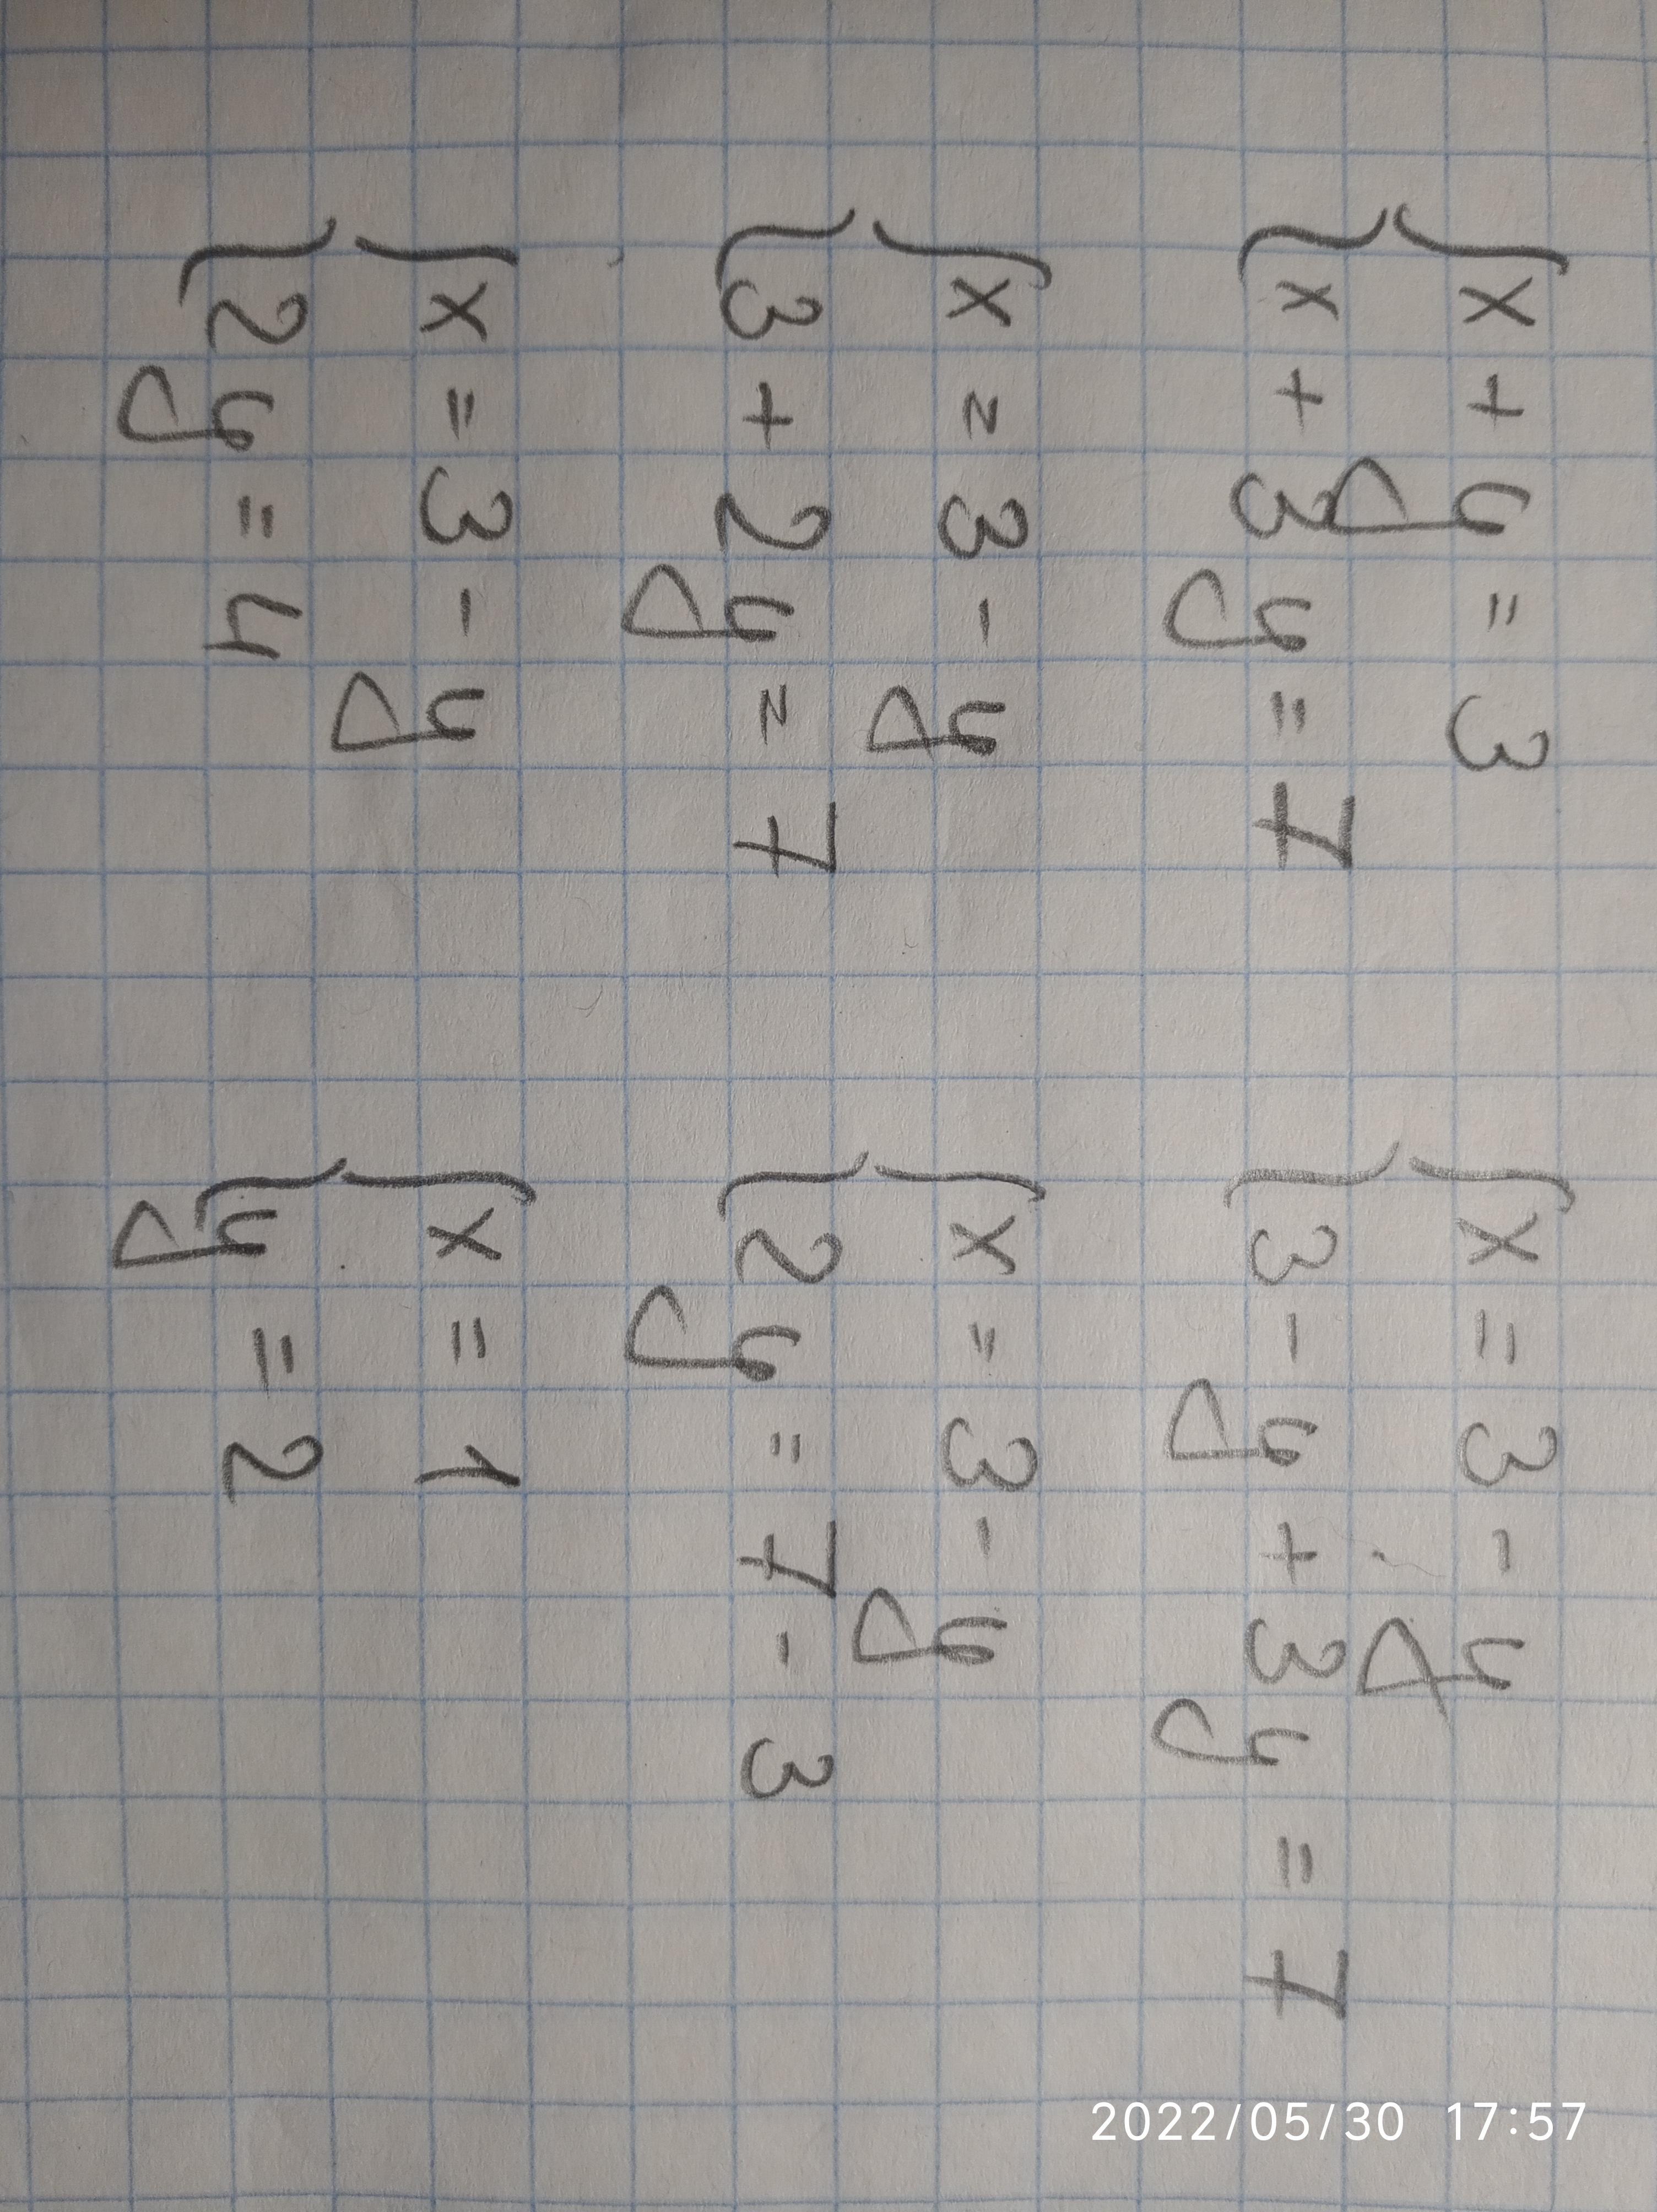 { x + y = 3
{ x + 3y = 7
{ x = 3 - y
{ 3 - y + 3y = 7
{ x = 3 - y
{ 3 + 2y = 7
{ x = 3 - y
{ 2y = 7 - 3
{ x = 3 - y
{ 2y = 4
{ x = 1
{ y = 2
2022/05/30 17:57